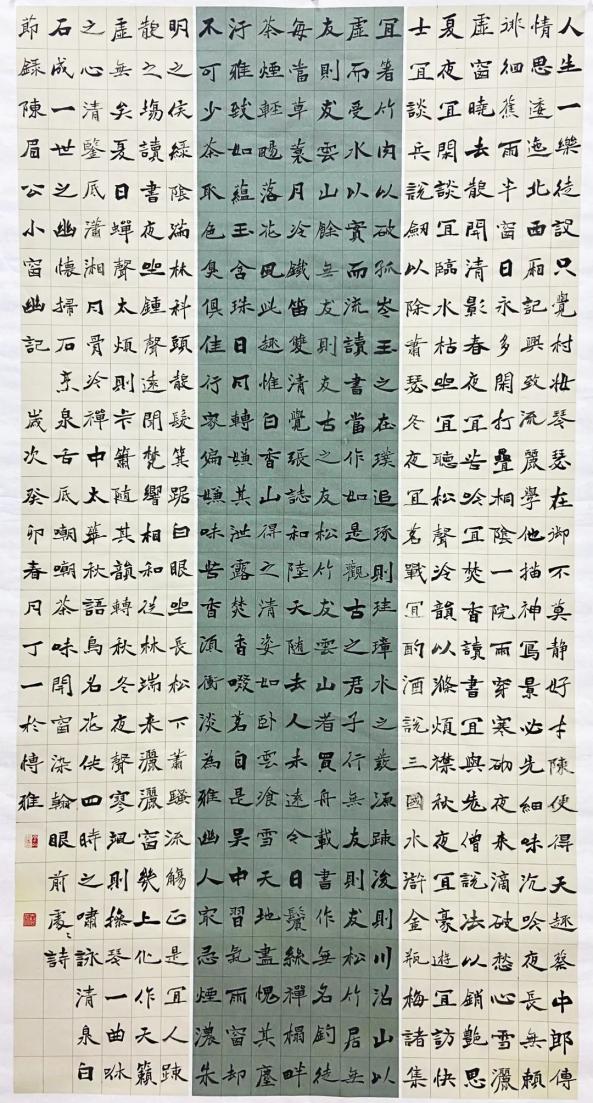 人生一樂徒設只覺村妝琴瑟在御不莫靜好才陳便得天趣蔡中郎傳
情思逶迤北西廂記興致流麗學他描神寫景必先細味沉吟夜長無賴
徘徊蕉雨半窗日永多閑打疊桐陰一院雨穿寒砌夜來滴破愁心雪灑
虛窗曉去散開清影春夜宜苦吟宜焚香讀書宜與老僧說法以銷艷思
夏夜宜閑談宜臨水枯坐宜聽松聲冷韻以滌煩襟秋夜宜豪遊宜訪快
士宜談兵說劍以除蕭瑟冬夜宜茗戰宜酌酒說三國水滸金瓶梅諸集
宜箸竹肉以破孤岑玉之在璞追琢則珪璋水之發源疎浚則川沼山以
虛而受水以實而流讀書當作如是觀古之君子行無友則友松竹居無
友則友雲山餘無友則友古之友松竹友雲山者買舟載書作無名釣徒
每當草蓑月冷鐵笛雙清覺張誌和陸天随去人未遠今日鬢絲禪榻畔
茶煙輕颺落花風此趣惟白香山得之清姿如卧雲飡雪天地盡愧其塵
汙雅致如蘊玉含珠日月轉嫌其泄露焚香啜茗自是吳中習氣雨窗却
不可少茶取色臭俱佳行家偏嫌味苦香須衝淡為雅幽人最忌煙濃朱
明之侯綠陰滿林科頭散髮箕踞白眼坐長松下蕭騷流觴正是宜人踈
散之塲讀書夜坐鍾聲遠聞梵響相和從林端来灑灑窗幾上化作天籟
虛無矣夏日蟬聲太煩則弄簫随其韻轉秋冬夜聲寒颯則操琴一曲咻
之心清鑒底瀟湘月骨冷禪中太華秋語鳥名花供四時之嘯詠清泉白
石成一世之幽懷掃石烹泉舌底嘲嘲茶味開窗染翰眼前處〻詩
節録陳眉公小窗幽記 歲次癸卯春月丁一於博雅